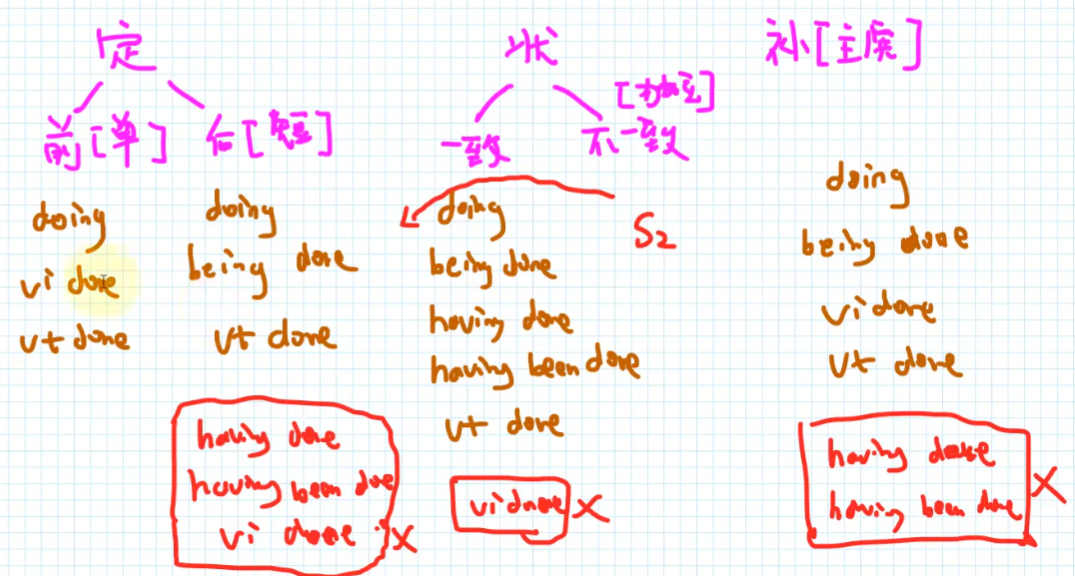 定
前[单]
后[短]
doing
vi done
vt done
doing
being done
vt done
having done
having been done
vi done
X
状
一致
不一致
doing
being done
having done
having been done
vt done
vi done
X
S2
补[主宾]
doing
being done
vi done
vt done
having done
having been done
X